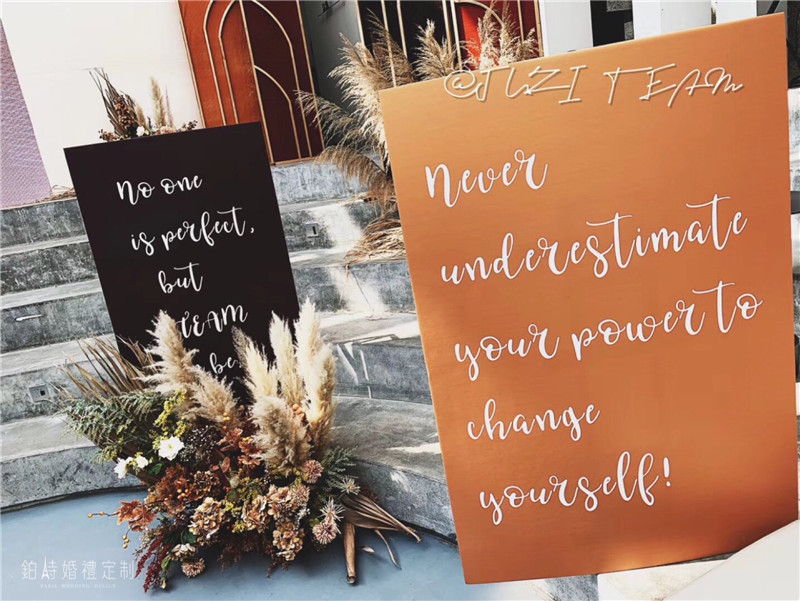 @JUZI TEAM
No one
is perfect,
but
TEAM
be
Never
underestimate
your power to
change
yourself!
鉑诗婚禮定制